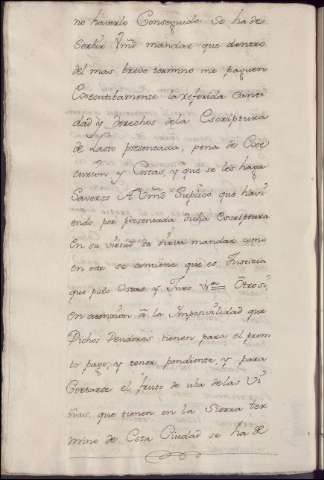 no haverlo Conseguido Se ha de
Servir Vmd mandar que dentro
del mas breve termino me paguen
Executibamente la referida Canti
dad y derechos de la Escriptura
de Lasto presentada, pena de Exe
cucion y Costas, y que se les haga
Saver= A Vmd Suplico que havi
endo por presentada dicha Escriptura
en su virtud se sirva mandar como
en este se contiene que es Justicia
que pido Costas y Juro &= Otrosi,
en atencion a la Imposivilidad que
Dichos Deudores tienen para el prom
to pago, y tener pendiente, y para
Cortarse el fruto de uba de las Vi
ñas, que tienen en la Sierra ter
mino de Esta Ciudad se ha de